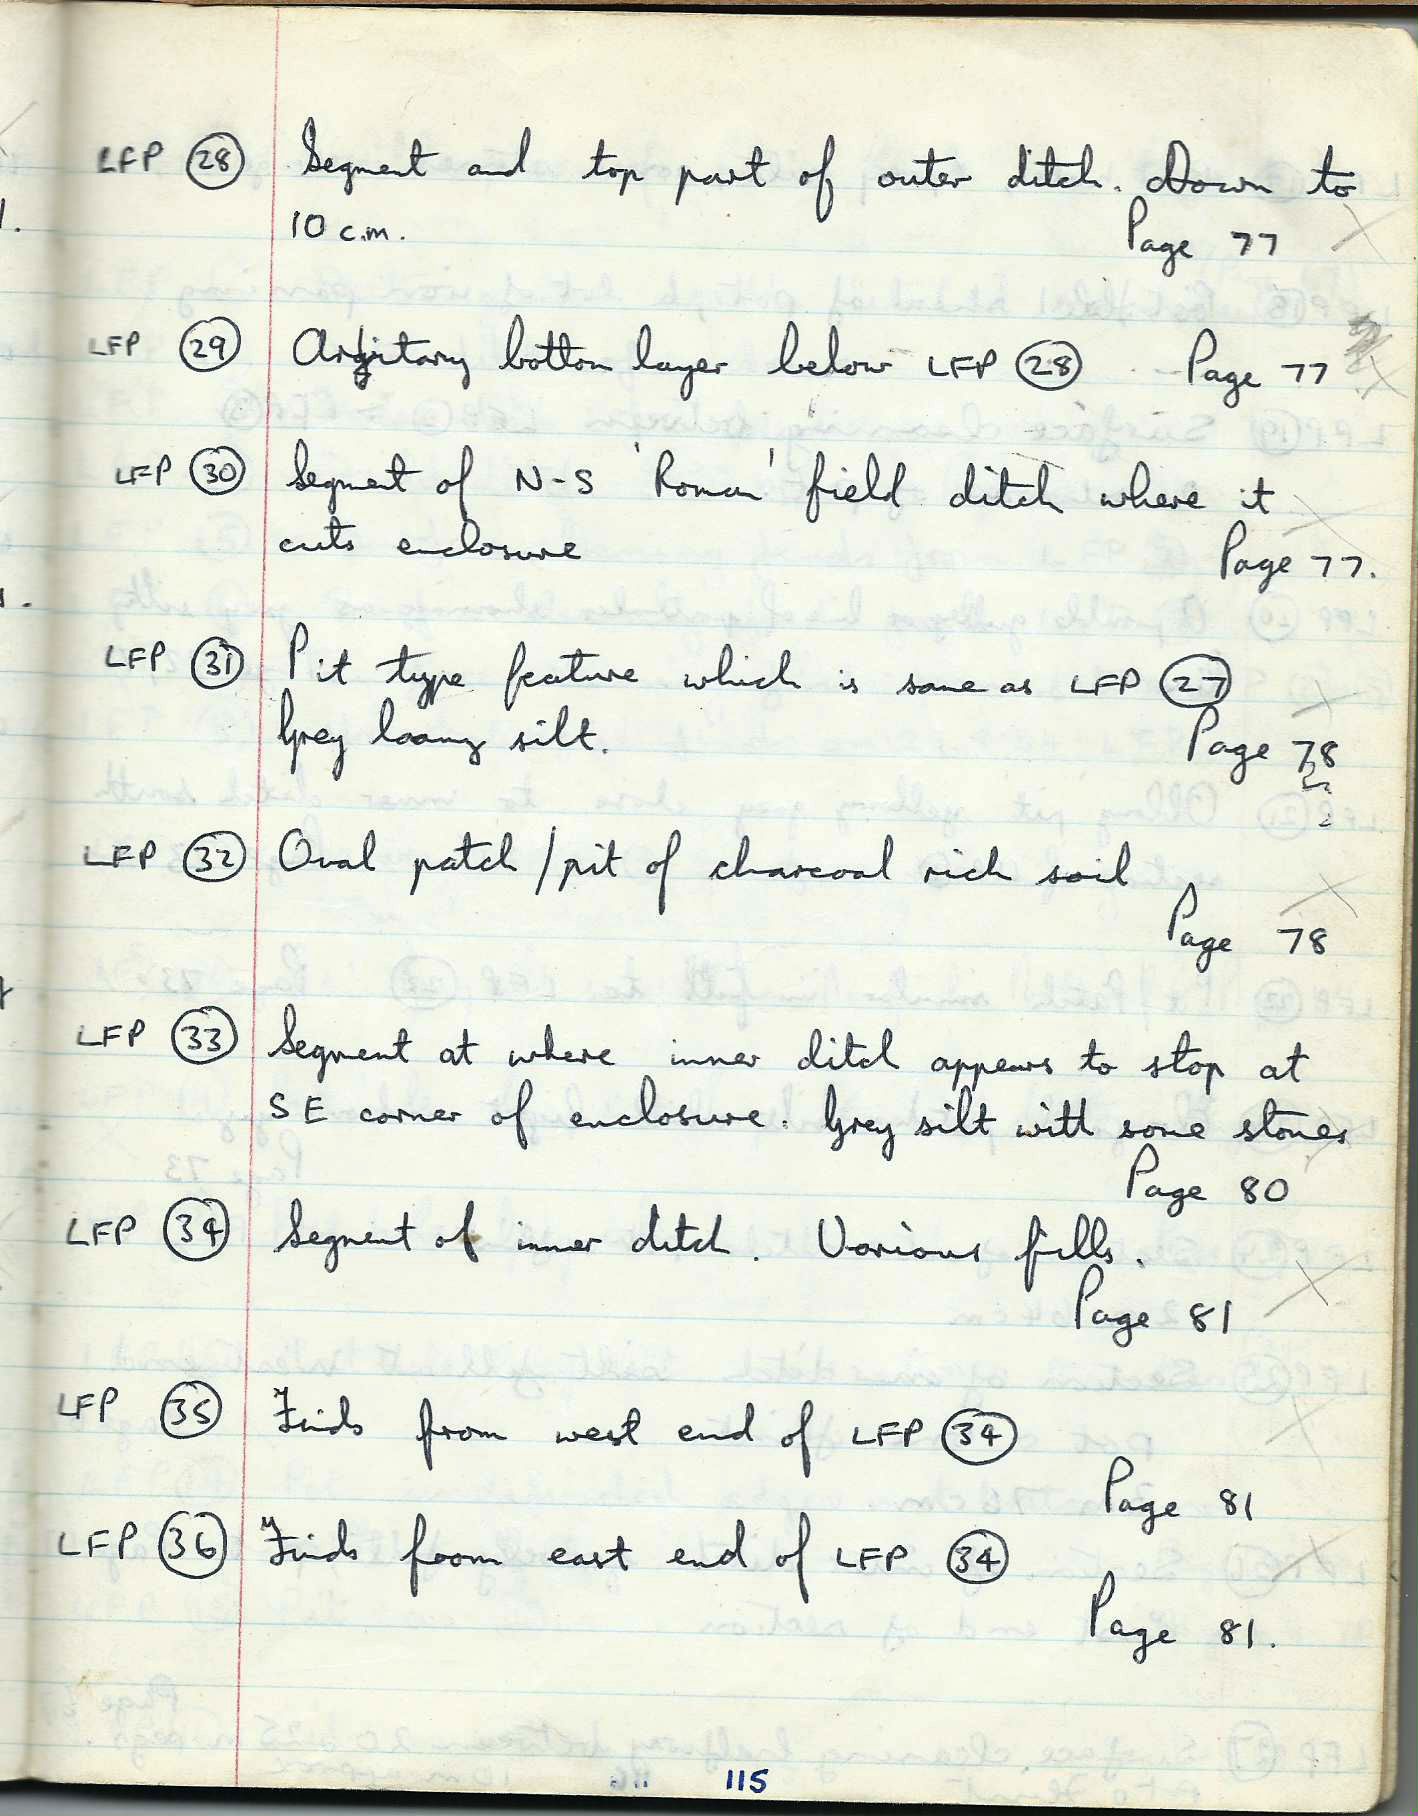 LFP 28 Segment and top part of outer ditch. Down to
10 c.m. Page 77
LFP 29 Arbitary bottom layer below LFP 28 Page 77
LFP 30 Segment of N-S 'Roman' field ditch where it
cuts enclosure Page 77.
LFP 31 Pit type feature which is same as LFP 27
Grey loamy silt. Page 78
LFP 32 Oval patch/pit of charcoal rich soil
Page 78
LFP 33 Segment at where inner ditch appears to stop at
SE corner of enclosure. Grey silt with some stones
Page 80
LFP 34 Segment of inner ditch. Various fills.
Page 81
LFP 35 Finds from west end of LFP 34
Page 81
LFP 36 Finds from east end of LFP 34
Page 81.
115